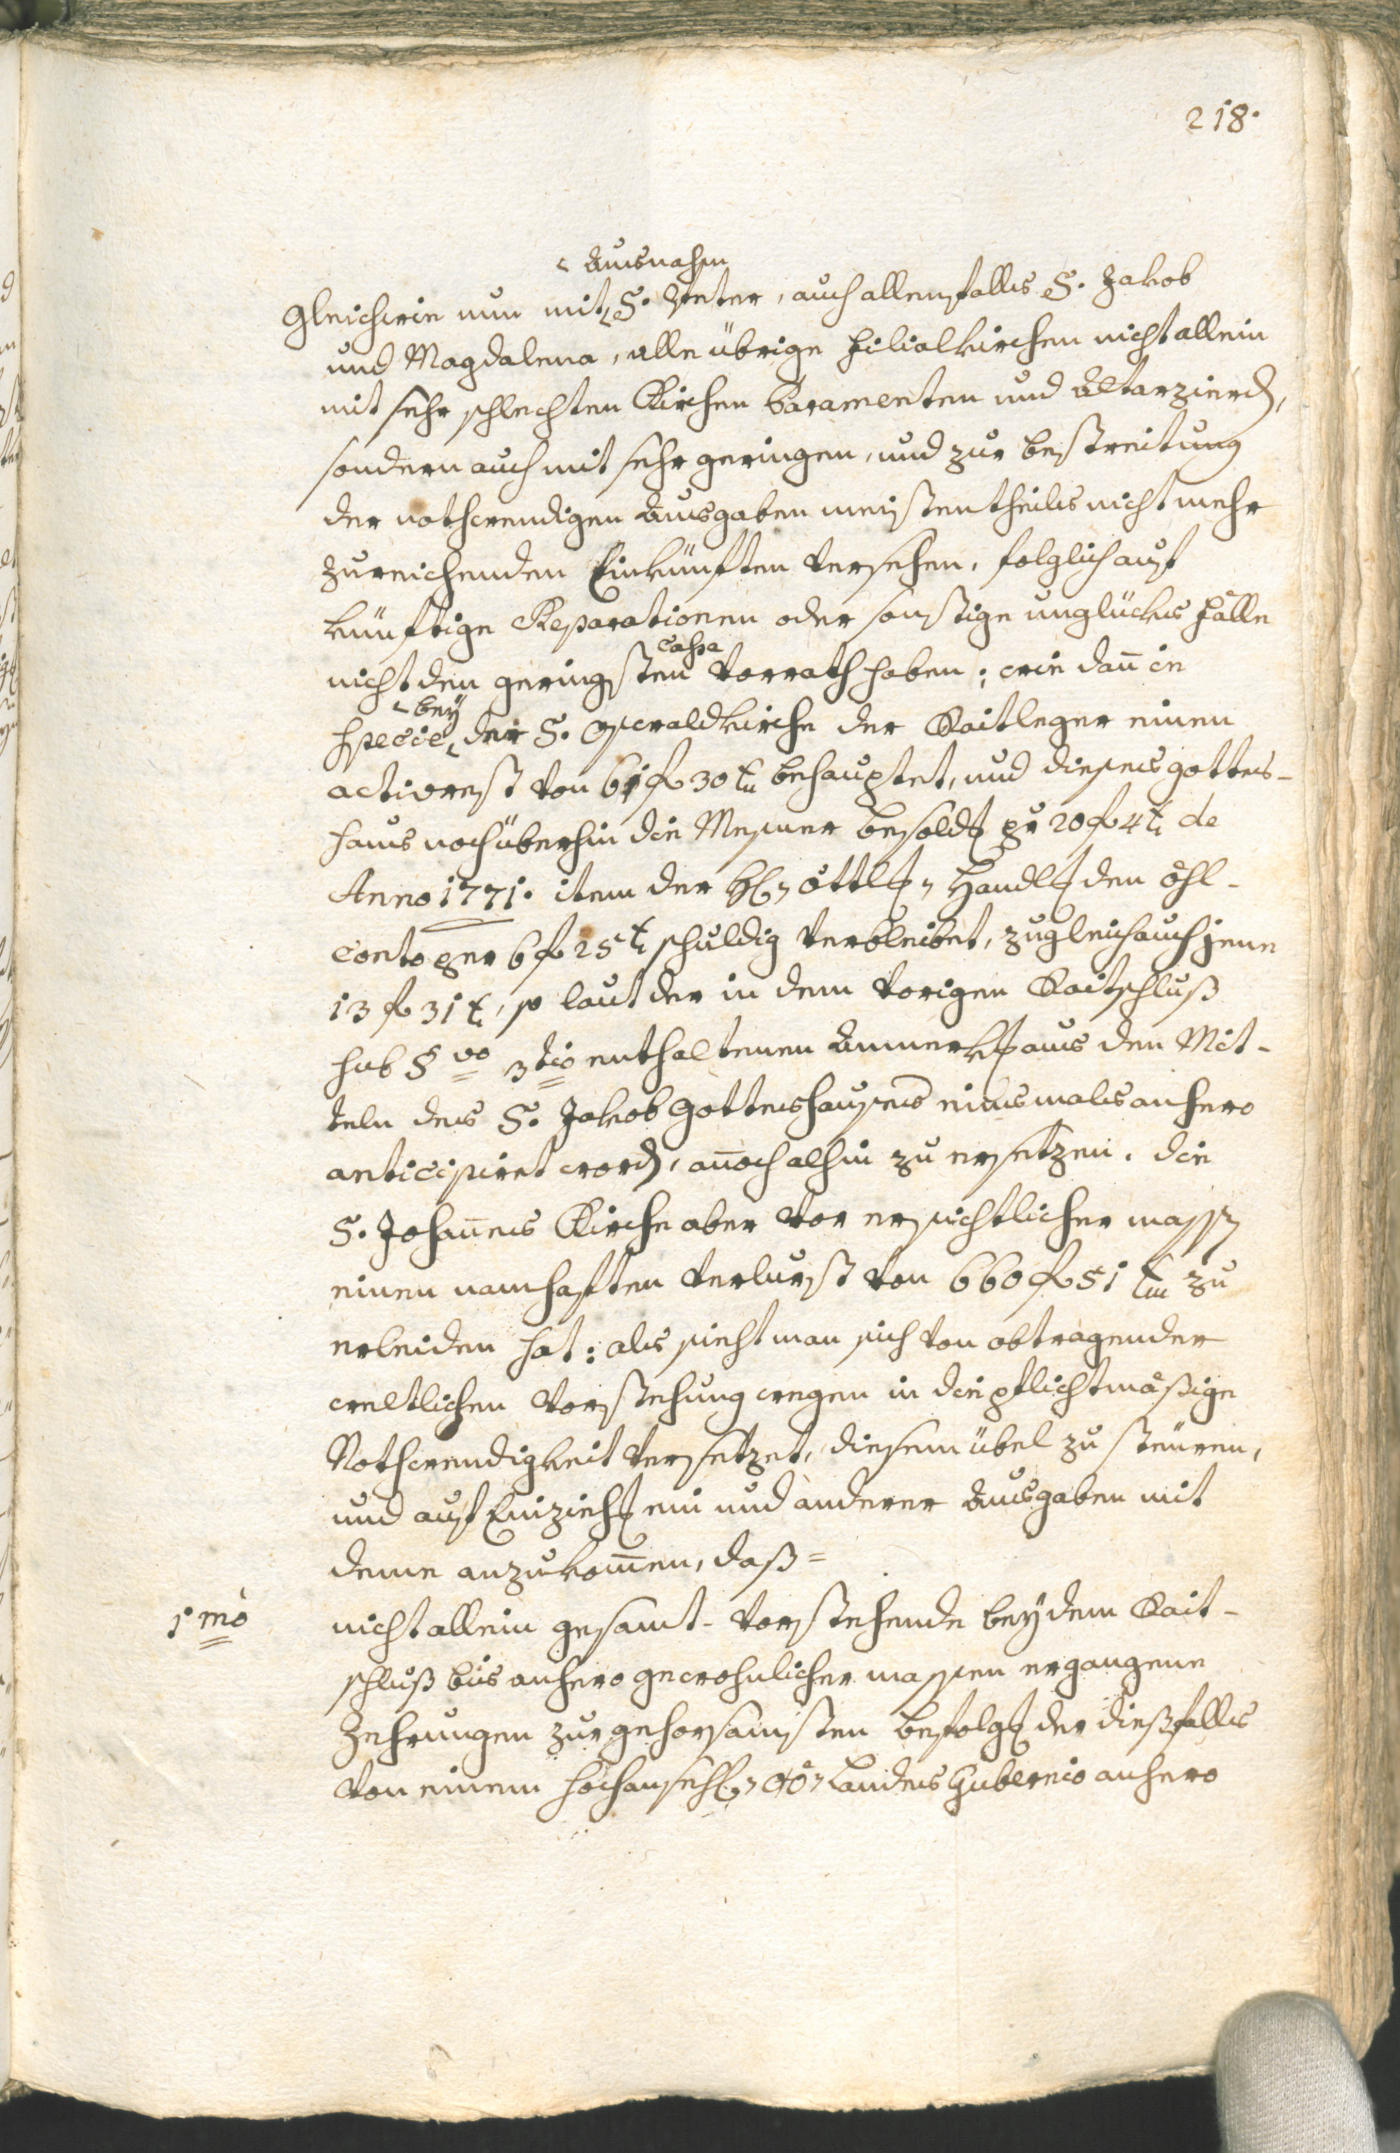 218.
Ausnahm
Gleichwie nun mit S. Peter, auch allenfalls S. Jakob
und Magdalena, alle übrige Filialkirchen nicht allein
mit sehr schlechten Kirchen Paramenten und Altarzierd,
sondern auch mit sehr geringen, und zur bestreitung
der nothwendigen Ausgaben meistentheils nicht mehr
zureichenden Einkünften versehen, folglich auf
künftige Reparationen oder sonstige unglücks Fälle
cassa
nicht den geringsten Vorrath haben; wie dañ in
bey
specie der S. Oswaldkirche der Raitleger einen
activrest von 61 f 30 x behauptet, und dieses gottes-
haus noch überhin die Messner besoldg pr 20 f 4 x de
Anno 1771. item der öttl Handlg den öhl-
conto per 6 f 25 x schuldig verbleibet, zugleich auch jene
13 f 31 x, so laut der in dem vorigen Raitschluß
sub §vo 3tio enthaltenen Anmerkg aus den Mit-
teln des S. Jakob Gotteshauses einsmals anhero
anticipiret word, añoch alhin zu ersetzen. die
S. Johañes Kirche aber vor ersichtlicher mass
einen namhaften Verlurst von 660 f 51 x zu
erleiden hat: als sieht man sich von obtragender
weltlichen Vorstehung wegen in die pflichtmäßige
Nothwendigkeit versetzet, diesem übel zu steüren,
und auf Einziehg ein und anderer Ausgaben mit
deme anzukom̄en, daß=
1mò nicht allein gesamt-Vorstehende bey dem Rait-
schluß bis anhero gewohnlicher massen ergangene
Zehrungen zur gehorsamsten befolgg der dießfalls
von einem hochansehl OÖ Landes Gubernio anhero